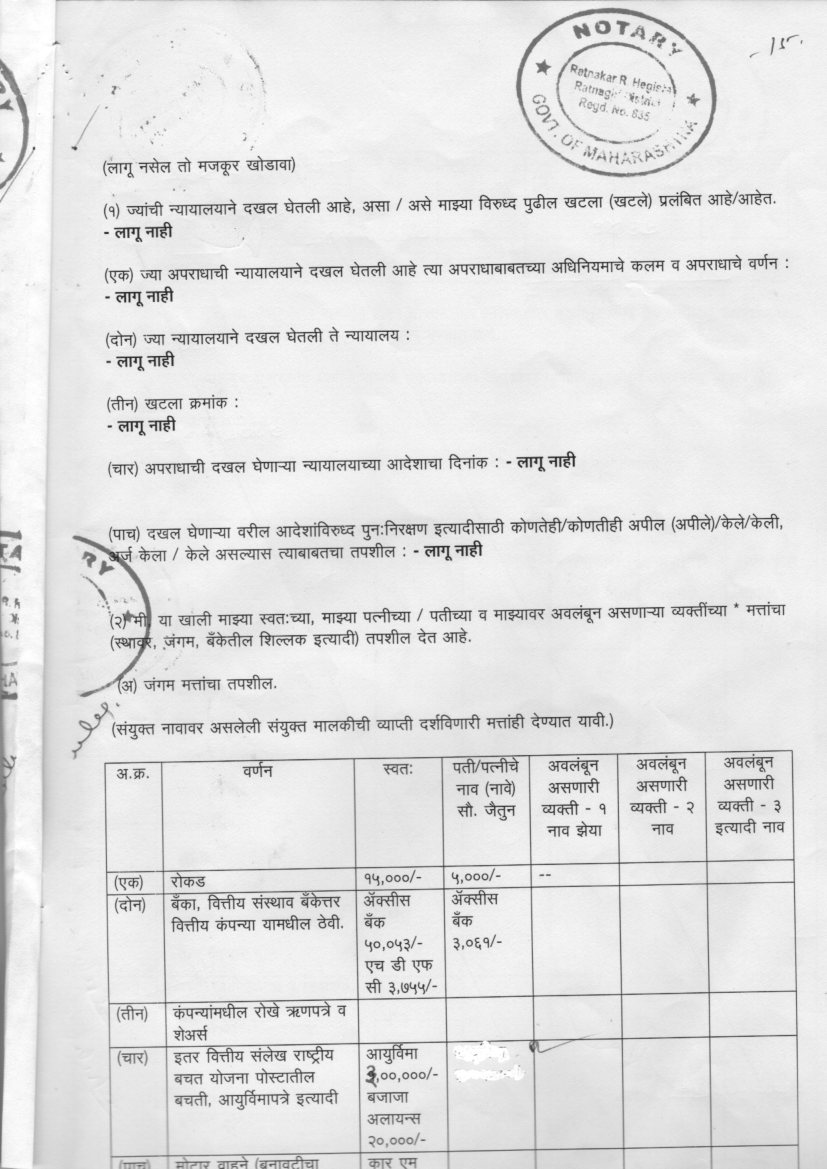 NOTARY
Ratnakar R. Hegiste
Ratnagiri District
Regd. No. 635
GOVT. OF MAHARASHTRA
(लागू नसेल तो मजकूर खोडावा)
(१) ज्यांची न्यायालयाने दखल घेतली आहे, असा / असे माझ्या विरुध्द पुढील खटला (खटले) प्रलंबित आहे/आहेत.
- लागू नाही
(एक) ज्या अपराधाची न्यायालयाने दखल घेतली आहे त्या अपराधाबाबतच्या अधिनियमाचे कलम व अपराधाचे वर्णन :
- लागू नाही
(दोन) ज्या न्यायालयाने दखल घेतली ते न्यायालय :
- लागू नाही
(तीन) खटला क्रमांक :
- लागू नाही
(चार) अपराधाची दखल घेणाऱ्या न्यायालयाच्या आदेशाचा दिनांक : - लागू नाही
(पाच) दखल घेणाऱ्या वरील आदेशांविरुध्द पुन:निरक्षण इत्यादीसाठी कोणतेही/कोणतीही अपील (अपीले)/केले/केली,
अर्ज केला / केले असल्यास त्याबाबतचा तपशील : - लागू नाही
(२) मी, या खाली माझ्या स्वत:च्या, माझ्या पत्नीच्या / पतीच्या व माझ्यावर अवलंबून असणाऱ्या व्यक्तींच्या * मत्तांचा
(स्थावर, जंगम, बँकेतील शिल्लक इत्यादी) तपशील देत आहे.
(अ) जंगम मत्तांचा तपशील.
(संयुक्त नावावर असलेली संयुक्त मालकीची व्याप्ती दर्शविणारी मत्तांही देण्यात यावी.)
अ.क्र. वर्णन स्वत: पती/पत्नीचे अवलंबून अवलंबून अवलंबून
नाव (नावे) असणारी असणारी असणारी
सौ. जैतुन व्यक्ती - १ व्यक्ती - २ व्यक्ती - ३
नाव झेया नाव इत्यादी नाव
(एक) रोकड १५,०००/- ५,०००/- --
(दोन) बँका, वित्तीय संस्थाव बँकेत्तर ॲक्सीस ॲक्सीस
वित्तीय कंपन्या यामधील ठेवी. बँक बँक
५०,०५३/- ३,०६१/-
एच डी एफ
सी ३,७५५/-
(तीन) कंपन्यांमधील रोखे ऋणपत्रे व
शेअर्स
(चार) इतर वित्तीय संलेख राष्ट्रीय आयुर्विमा
बचत योजना पोस्टातील ३,००,०००/-
बचती, आयुर्विमापत्रे इत्यादी बजाजा
अलायन्स
२०,०००/-
(पाच) मोटार वाहने (बनावटीचा कार एम